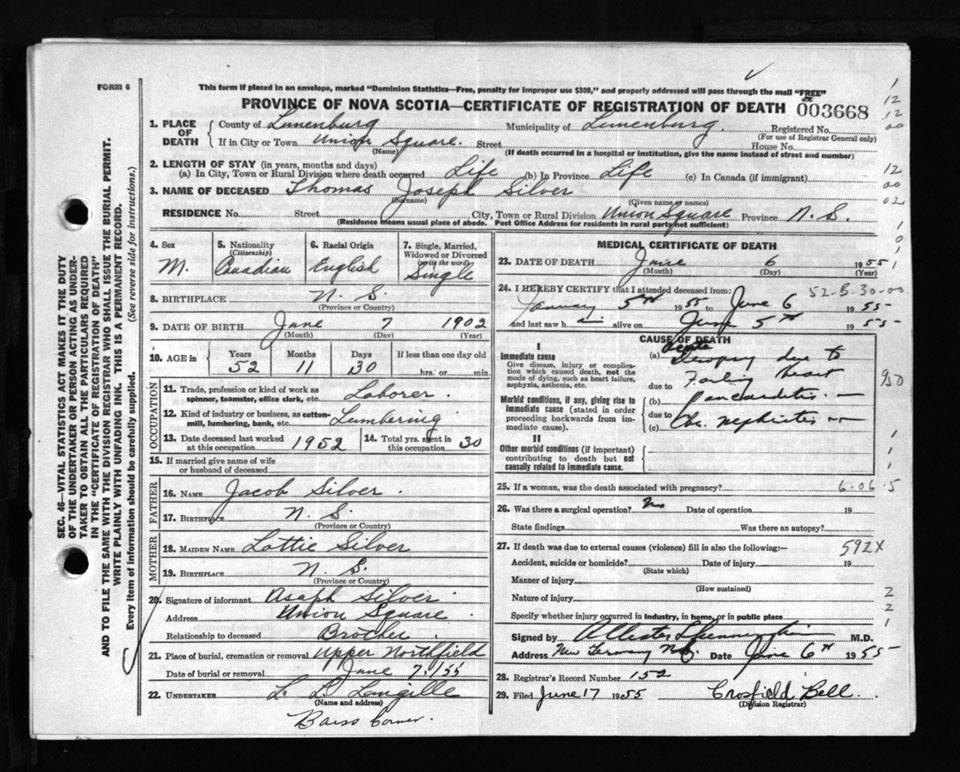 FORM 6
This form if placed in an envelope, marked "Dominion Statistics—Free, penalty for improper use $300," and properly addressed will pass through the mail "FREE"
PROVINCE OF NOVA SCOTIA—CERTIFICATE OF REGISTRATION OF DEATH 003668
SEC. 46—VITAL STATISTICS ACT MAKES IT THE DUTY
OF THE UNDERTAKER OR PERSON ACTING AS UNDER-
TAKER TO OBTAIN ALL THE PARTICULARS REQUIRED
IN THE "CERTIFICATE OF REGISTRATION OF DEATH"
AND TO FILE THE SAME WITH THE DIVISION REGISTRAR WHO SHALL ISSUE THE BURIAL PERMIT.
WRITE PLAINLY WITH UNFADING INK. THIS IS A PERMANENT RECORD.
Every item of information should be carefully supplied. (See reverse side for instructions.)
1. PLACE OF DEATH
County of Lunenburg Municipality of Lunenburg. Registered No.
(For use of Registrar General only)
If in City or Town Union Square. Street House No.
(Name) (If death occurred in a hospital or institution, give the name instead of street and number)
2. LENGTH OF STAY (in years, months and days)
(a) In City, Town or Rural Division where death occurred Life (b) In Province Life (c) In Canada (if immigrant)
3. NAME OF DECEASED Thomas Joseph Silver
(Surname) (Given name or names)
RESIDENCE No. Street City, Town or Rural Division Union Square Province N.S.
(Residence means usual place of abode. Post Office Address for residents in rural parts not sufficient)
4. Sex
M.
5. Nationality
(Citizenship)
Canadian
6. Racial Origin
English
7. Single, Married,
Widowed or Divorced
(write the word)
Single
8. BIRTHPLACE N. S.
(Province or Country)
9. DATE OF BIRTH June 7 1902
(Month) (Day) (Year)
10. AGE in Years Months Days If less than one day old
52 11 30 hrs. or min.
OCCUPATION
11. Trade, profession or kind of work as
spinner, teamster, office clerk, etc. Laborer.
12. Kind of industry or business, as cotton-
mill, lumbering, bank, etc. Lumbering
13. Date deceased last worked
at this occupation 1952
14. Total yrs. spent in
this occupation 30
15. If married give name of wife
or husband of deceased
FATHER
16. NAME Jacob Silver.
17. Birthplace N. S.
(Province or Country)
MOTHER
18. MAIDEN NAME Lottie Silver
19. BIRTHPLACE N. S.
(Province or Country)
20. Signature of informant Asaph Silver
Address Union Square
Relationship to deceased Brother.
21. Place of burial, cremation or removal Upper Northfield
Date of burial or removal June 7/55
22. UNDERTAKER L. L. Langille
(Name and address)
Barss Corner.
MEDICAL CERTIFICATE OF DEATH
23. DATE OF DEATH June 6 1955
(Month) (Day) (Year)
24. I HEREBY CERTIFY that I attended deceased from:
52-B-30-00
January 5th 1955 to June 6 1955
and last saw him alive on June 5th 1955
CAUSE OF DEATH
I
Immediate cause
Give disease, injury or complica-
tion which caused death, not the
mode of dying, such as heart failure,
asphyxia, asthenia, etc.
(a) Dropsy due to
due to Failing heart
Morbid conditions, if any, giving rise to
immediate cause (stated in order
proceeding backwards from im-
mediate cause).
(b) Pancarditis
due to
(c) Chr. nephritis
II
Other morbid conditions (if important)
contributing to death but not
causally related to immediate cause.
25. If a woman, was the death associated with pregnancy?
6-06-5
26. Was there a surgical operation? no Date of operation 19
State findings Was there an autopsy?
27. If death was due to external causes (violence) fill in also the following:—
592X
Accident, suicide or homicide? Date of injury 19
(State which)
Manner of injury
(How sustained)
Nature of injury
Specify whether injury occurred in industry, in home, or in public place
Signed by M.D.
Address New Germany N.S. Date June 6th 1955
28. Registrar's Record Number 152
29. Filed June 17 1955 Crosfield Bell.
(Division Registrar)